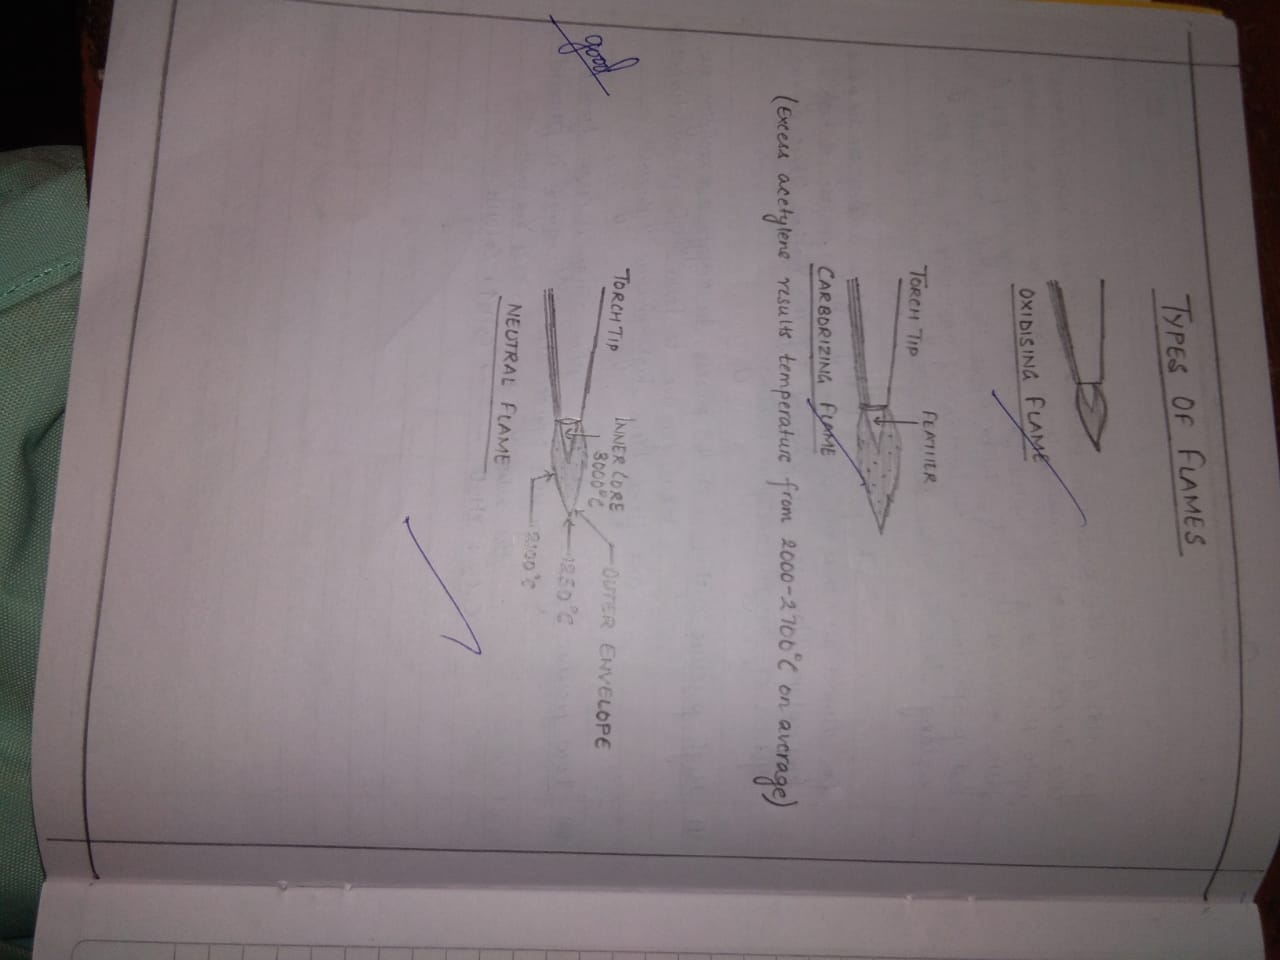 TYPES OF FLAMES
OXIDISING FLAME
TORCH TIP
FEATHER
CARBORIZING FLAME
(Excess acetylene results temperature from 2000-2700°C on average)
TORCH TIP
INNER CORE
3000°C
OUTER ENVELOPE
1250°C
2100°C
NEUTRAL FLAME
good